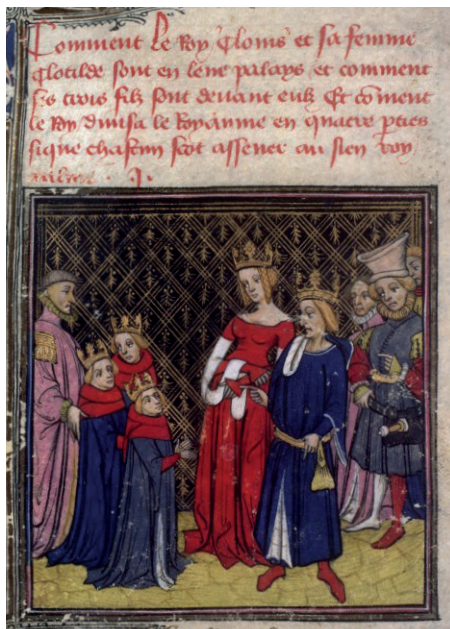 Comment Le Roy Clouis et sa femme
Clotilde sont en leue palays et comment
ses trois filz sont deuant eulx Et cõment
le Roy diuisa le Royaume en quatre pties
sique chascun scot assener au sien roy